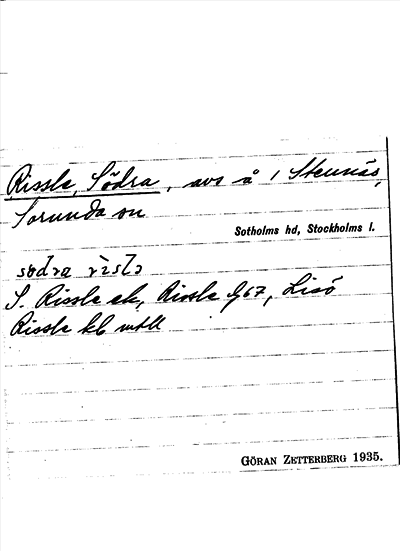 Rissla, Södra, avs å i Stennäs,
Sorunda sn
Sotholms hd, Stockholms l.
södra risla
S. Rissla ek, Rissla g67, Lisö
Rissla kb
GÖRAN ZETTERBERG 1935.